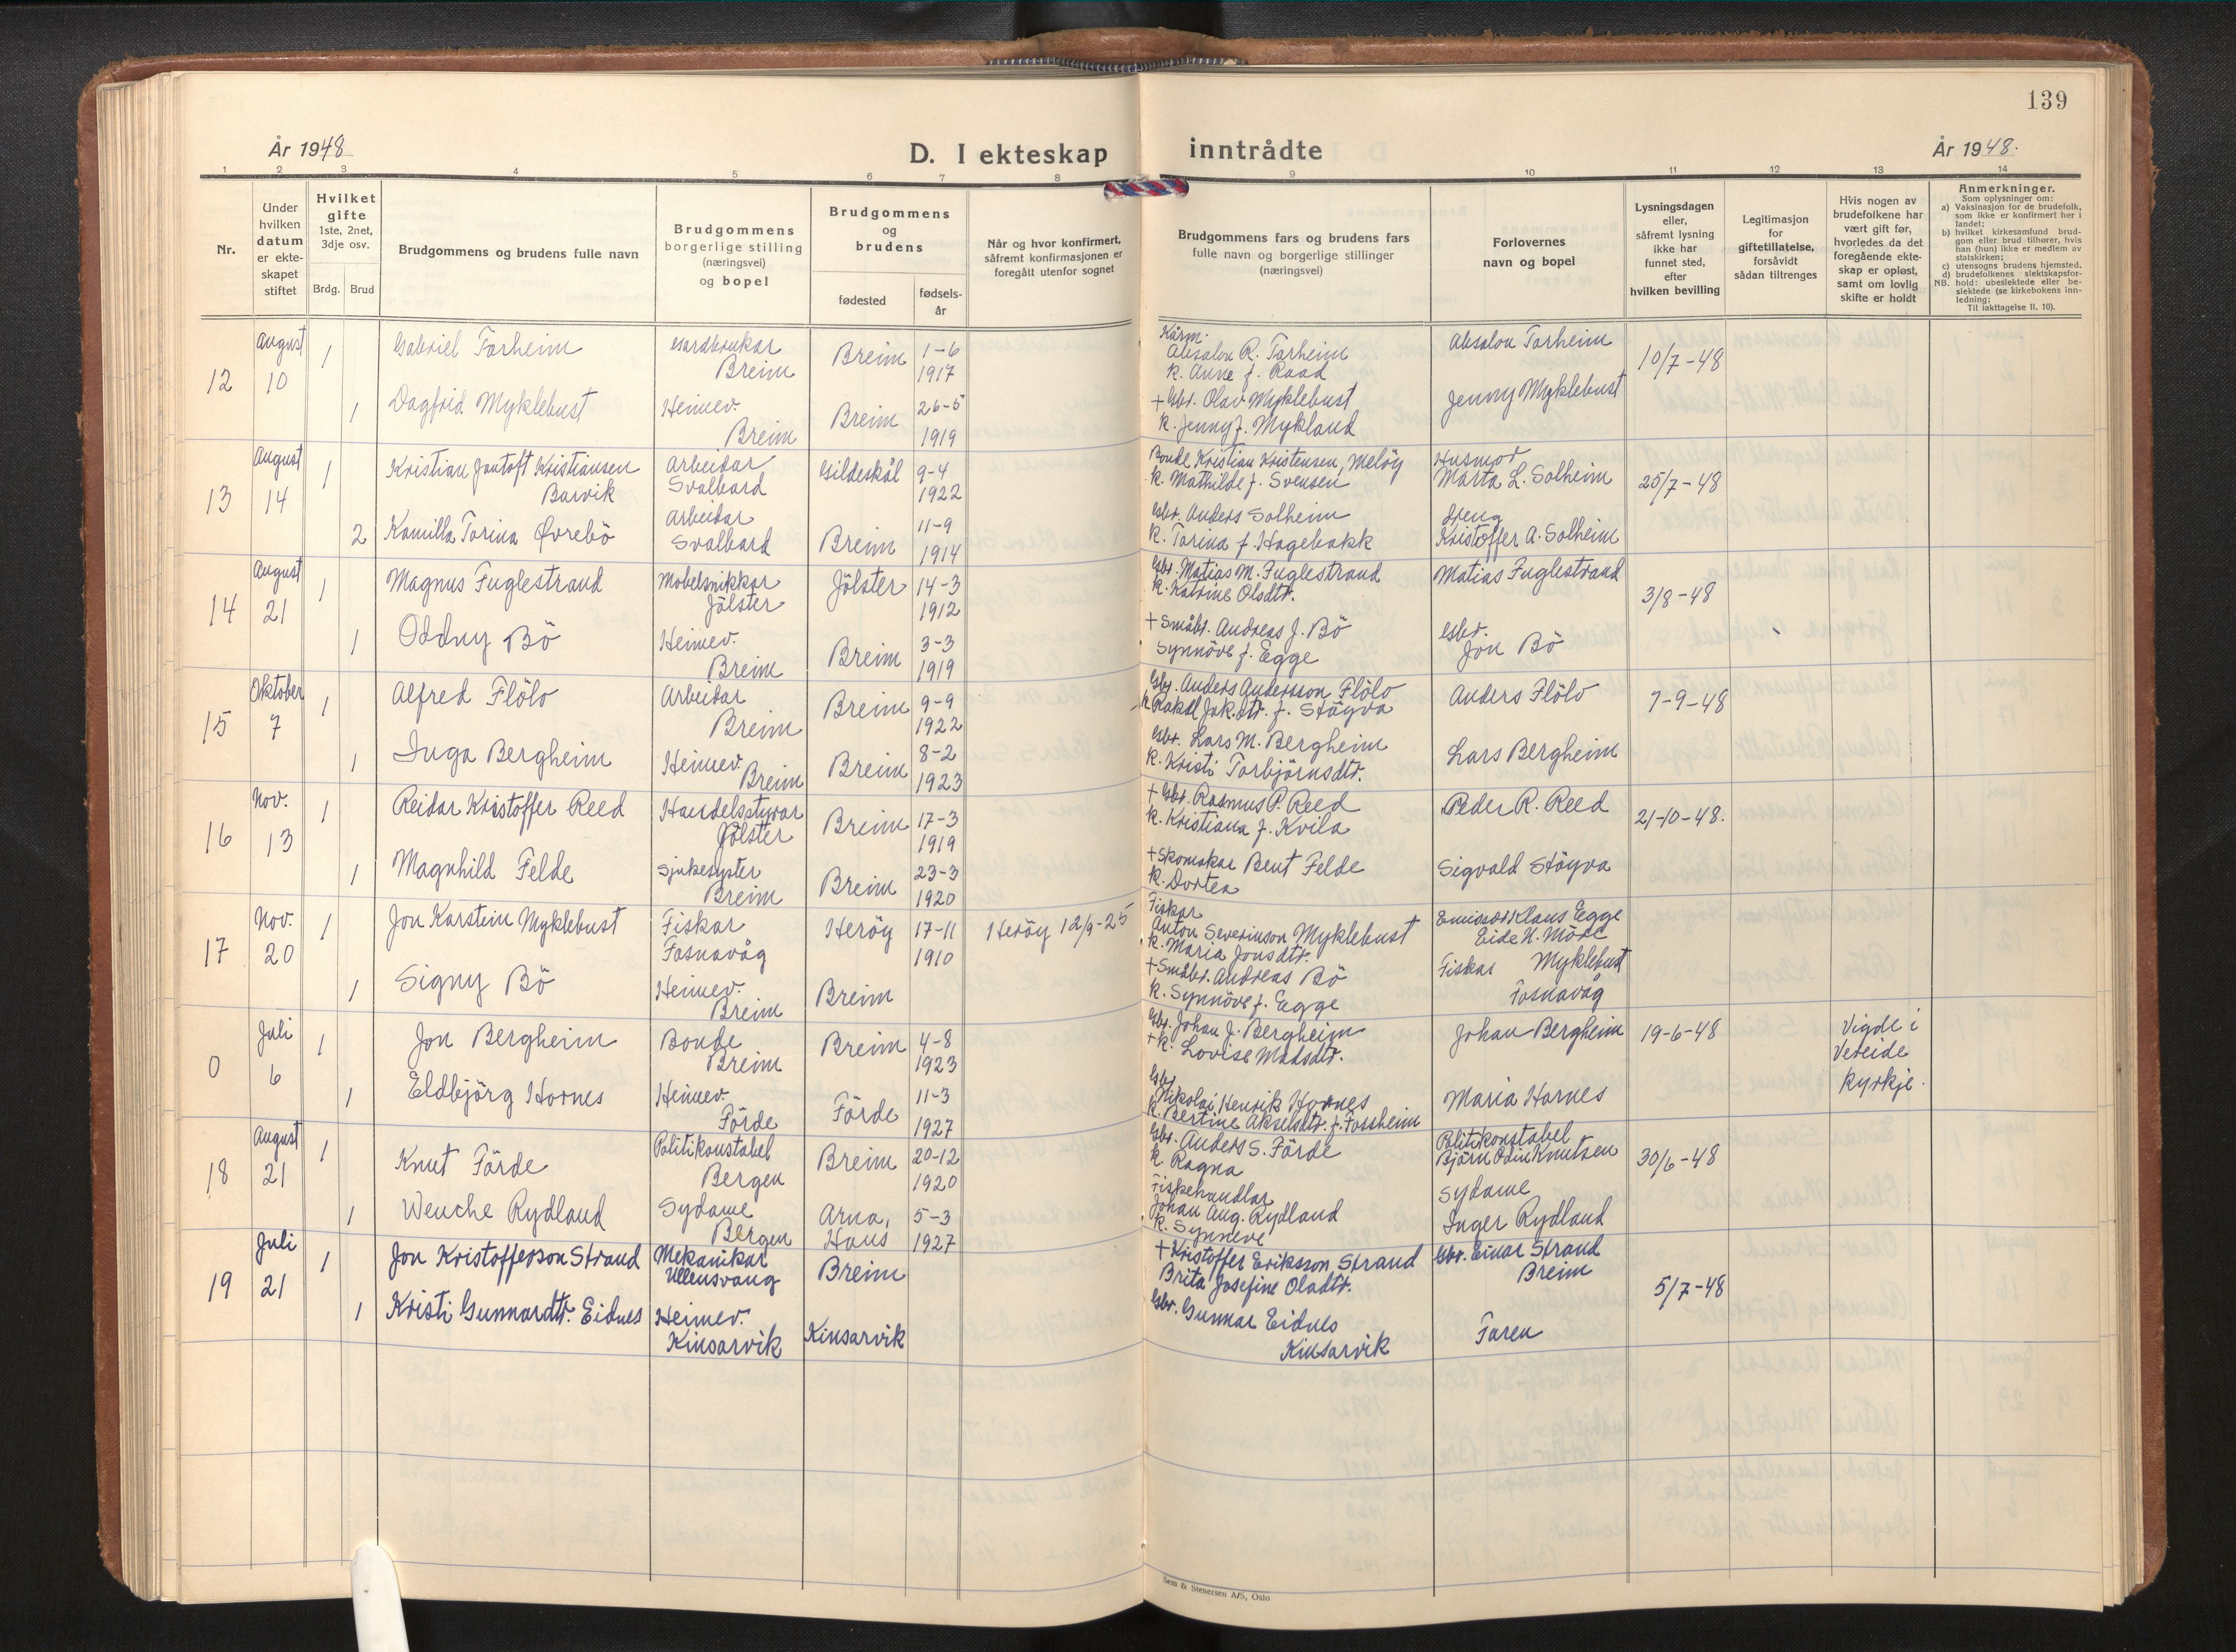 139
År 1948
D. I ekteskap inntrådte
År 1948.
1 2 3 4 5 6 7 8 9 10 11 12 13 14
Nr.
Under
hvilken
datum
er ekte-
skapet
stiftet
Hvilket
gifte
1ste, 2net,
3dje osv.
Brdg. Brud
Brudgommens og brudens fulle navn
Brudgommens
borgerlige stilling
(næringsvei)
og bopel
Brudgommens
og
brudens
fødested
fødsels-
år
Når og hvor konfirmert,
såfremt konfirmasjonen er
foregått utenfor sognet
Brudgommens fars og brudens fars
fulle navn og borgerlige stillinger
(næringsvei)
Forlovernes
navn og bopel
Lysningsdagen
eller,
såfremt lysning
ikke har
funnet sted,
efter
hvilken bevilling
Legitimasjon
for
giftetillatelse,
forsåvidt
sådan tiltrenges
Hvis nogen av
brudefolkene har
vært gift før,
hvorledes da det
foregående ekte-
skap er opløst,
samt om lovlig
skifte er holdt
Anmerkninger.
Som oplysninger om:
a) Vaksinasjon for de brudefolk,
som ikke er konfirmert her i
landet;
b) hvilket kirkesamfund brud-
gom eller brud tilhører, hvis
han (hun) ikke er medlem av
statskirken;
c) utensogns brudens hjemsted.
d) brudefolkenes slektskapsfor-
NB. hold: ubeslektede eller be-
slektede (se kirkebokens inn-
ledning;
Til iakttagelse II. 10).
12
August
10
1
Gabriel Tarheim
Gardbrukar
Breim
Breim
1-6
1917
Kårm.
Absalon R. Tarheim
k. Anne f. Raad
Absalon Tarheim
10/7-48
1
Dagfrid Myklebust
Heimev.
Breim
Breim
26-5
1919
+ Gbr. Olav Myklebust
k. Jenny f. Mykland
Jenny Myklebust
13
August
14
1
Kristian Jantoft Kristiansen
Barvik
Arbeidar
Svalbard
Gildeskål
9-4
1922
Bonde Kristian Kristensen, Meløy
k. Mathilde f. Svensen
Husmor
Marta L. Solheim
25/7-48
2
Kamilla Tarina Øvrebö
Arbeidar
Svalbard
Breim
11-9
1914
Gbr. Anders Solheim
k. Tarina f. Hagebakk
dreng
Kristoffer A. Solheim
14
August
21
1
Magnus Fuglestrand
Møbelsnikkar
Jölster
Jölster
14-3
1912
Gbr. Matias M. Fuglestrand
k. Katrine Olsdtr.
Matias Fuglestrand
3/8-48
1
Oddny Bö
Heimev.
Breim
Breim
3-3
1919
+ Småbr. Andreas J. Bö
Synnöve f. Egge
Gbr.
Jon Bö
15
Oktober
7
1
Alfred Flölo
Arbeidar
Breim
Breim
9-9
1922
Gbr. Anders Andersson Flölo
k. Rakel Jak.dtr. f. Stöyva
Anders Flölo
7-9-48
1
Inga Bergheim
Heimev.
Breim
Breim
8-2
1923
Gbr. Lars M. Bergheim
k. Kristi Torbjörnsdtr.
Lars Bergheim
16
Nov.
13
1
Reidar Kristoffer Reed
Handelsstyrar
Jölster
Breim
17-3
1919
+ Gbr. Rasmus P. Reed
k. Kristiana f. Kvila
Peder R. Reed
21-10-48.
1
Magnhild Felde
Sjukesyster
Breim
Breim
23-3
1920
+ Skomakar Bent Felde
k. Dortea
Sigvald Stöyva
17
Nov.
20
1
Jon Karstein Myklebust
Fiskar
Fosnavåg
Heröy
17-11
1910
Heröy 12/9-25
Fiskar
Anton Severinson Myklebust
k. Maria Jonsdtr.
Emissær Klaus Egge
Eide N. Möre
1
Signy Bö
Heimev.
Breim
Breim
+ Småbr. Andreas Bö
k. Synnöve f. Egge
Fiskar Myklebust
Fosnavåg
0
Juli
6
1
Jon Bergheim
Bonde
Breim
Breim
4-8
1923
Gbr. Johan J. Bergheim
+k. Lovise Madsdtr.
Johan Bergheim
19-6-48
Vigde i
Vereide
kyrkje.
1
Eldbjörg Hornes
Heimev.
Förde
Förde
11-3
1927
Gbr.
Nikolai Henrik Hornes
k. Bertine Akselsdtr. f. Fossheim
Maria Hornes
18
August
21
1
Knut Förde
Politikonstabel
Bergen
Breim
20-12
1920
Gbr. Anders S. Förde
k. Ragna
Politikonstabel
Björn Odin Knutsen
30/6-48
1
Wenche Rydland
Sydame
Bergen
Arna,
Haus
5-3
1927
Fiskehandlar
Johan Aug. Rydland
k. Synneve
Sydame
Inger Rydland
19
Juli
21
1
Jon Kristofferson Strand
Mekanikar
Ullensvang
Breim
+ Kristoffer Eriksson Strand
Brita Josefine Oladtr.
Gbr. Einar Strand
Breim
5/7-48
1
Kristi Gunnardtr. Eidnes
Heimev.
Kinsarvik
Kinsarvik
Gbr. Gunnar Eidnes
Kinsarvik
Faren
Sem & Stenersen A/S, Oslo